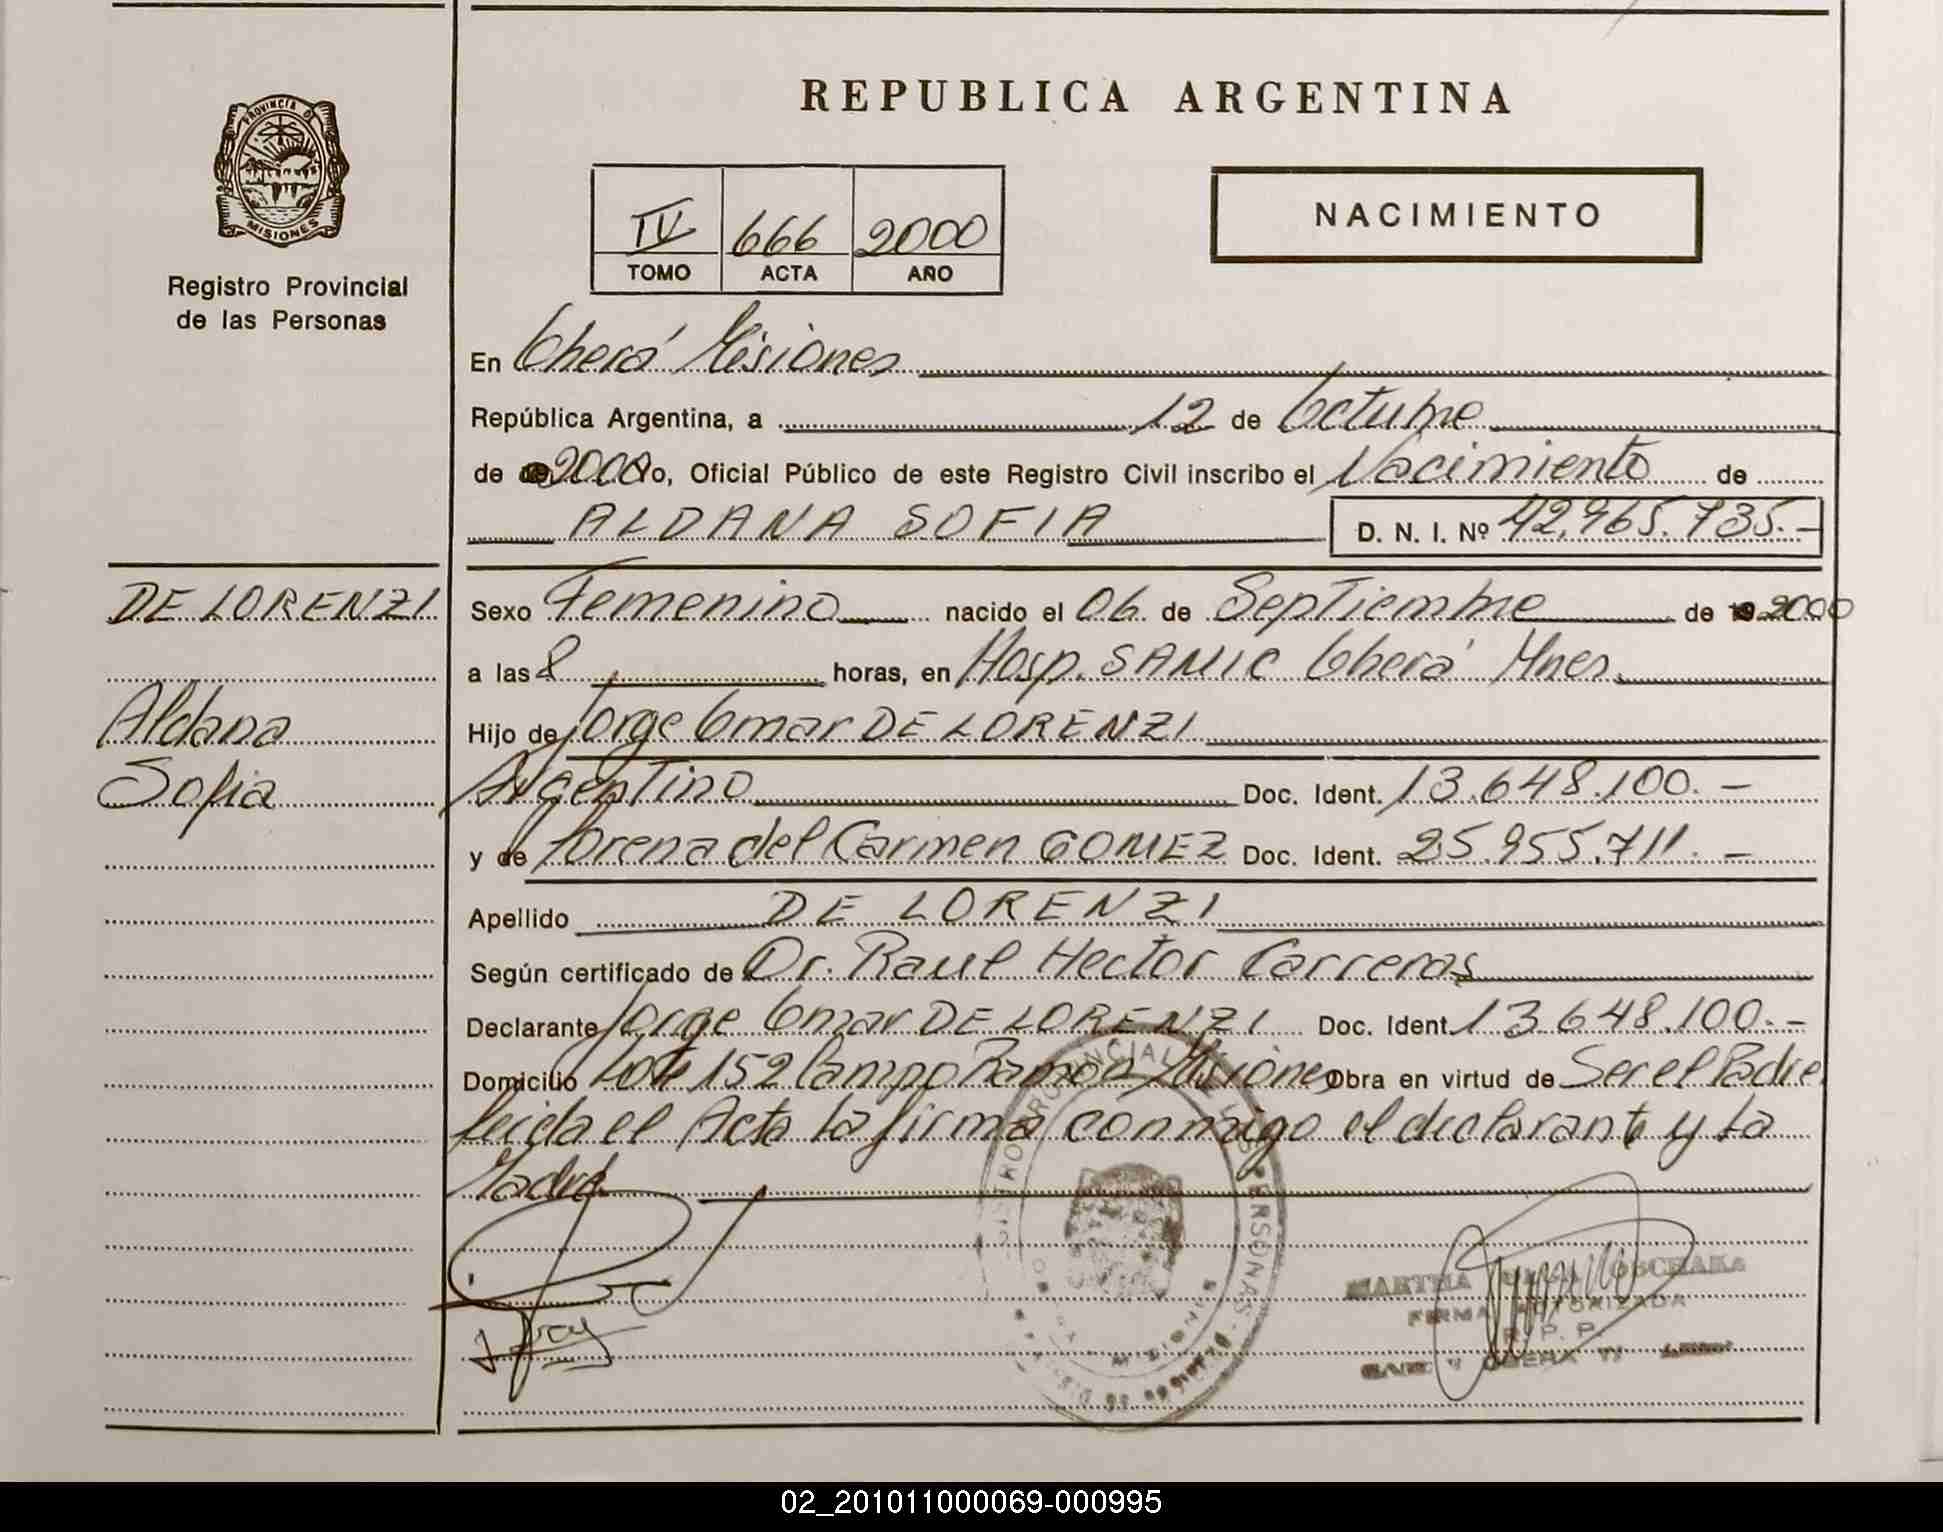 PROVINCIA DE
MISIONES
Registro Provincial
de las Personas
REPUBLICA ARGENTINA
IV 666 2000
TOMO ACTA AÑO
NACIMIENTO
En Oberá Misiones
República Argentina, a 12 de Octubre
de 2000 Yo, Oficial Público de este Registro Civil inscribo el Nacimiento de
ALDANA SOFIA D. N. I. Nº 42.965.735.-
DE LORENZI
Aldana
Sofia
Sexo Femenino nacido el 06 de Septiembre de 2000
a las 8 horas, en Hosp. SAMIC Oberá Mnes.
Hijo de Jorge Omar DE LORENZI
Argentino Doc. Ident. 13.648.100.-
y de Lorena del Carmen GOMEZ Doc. Ident. 25.955.711.-
Apellido DE LORENZI
Según certificado de Dr. Raul Hector Carreras
Declarante Jorge Omar DE LORENZI Doc. Ident. 13.648.100.-
Domicilio Lote 152 Campo Ramón Misiones Obra en virtud de Ser el Padre
Leida el Acta la firma conmigo el declarante y la
Madre
MARTHA
FIRMA AUTORIZADA
R. P. P.
02_201011000069-000995